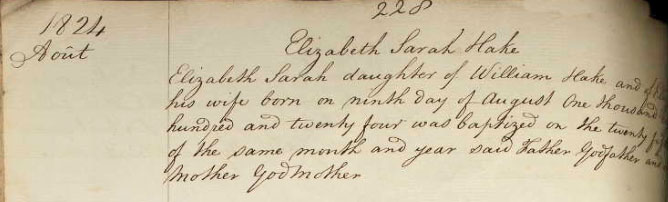 228
1824
Août
Elizabeth Sarah Hake
Elizabeth Sarah daughter of William Hake and of
his wife born on ninth day of August One thousand
hundred and twenty four was baptized on the twenty
of the same month and year said Father Godfather and
Mother Godmother